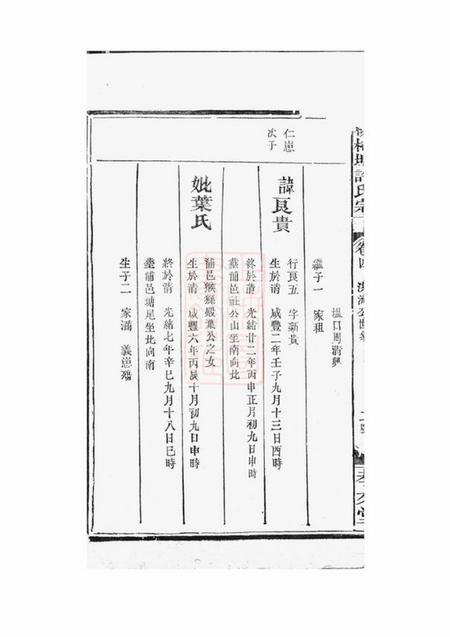 許氏宗
卷四
溫口周清興
繼子一 家租
仁崽次子
諱良貴
行良五 字新貴
生於清 咸豐二年壬子九月十三日酉時
終於清 光緒廿二年丙申正月初九日申時
墓葬邑社公山坐南向北
妣葉氏
浦邑 公之女
生於清 咸豐六年丙辰十月初九日申時
終於清 光緒七年辛巳九月十八日巳時
塟浦邑塘尾坐北向南
生子二 家滿 義崽殤